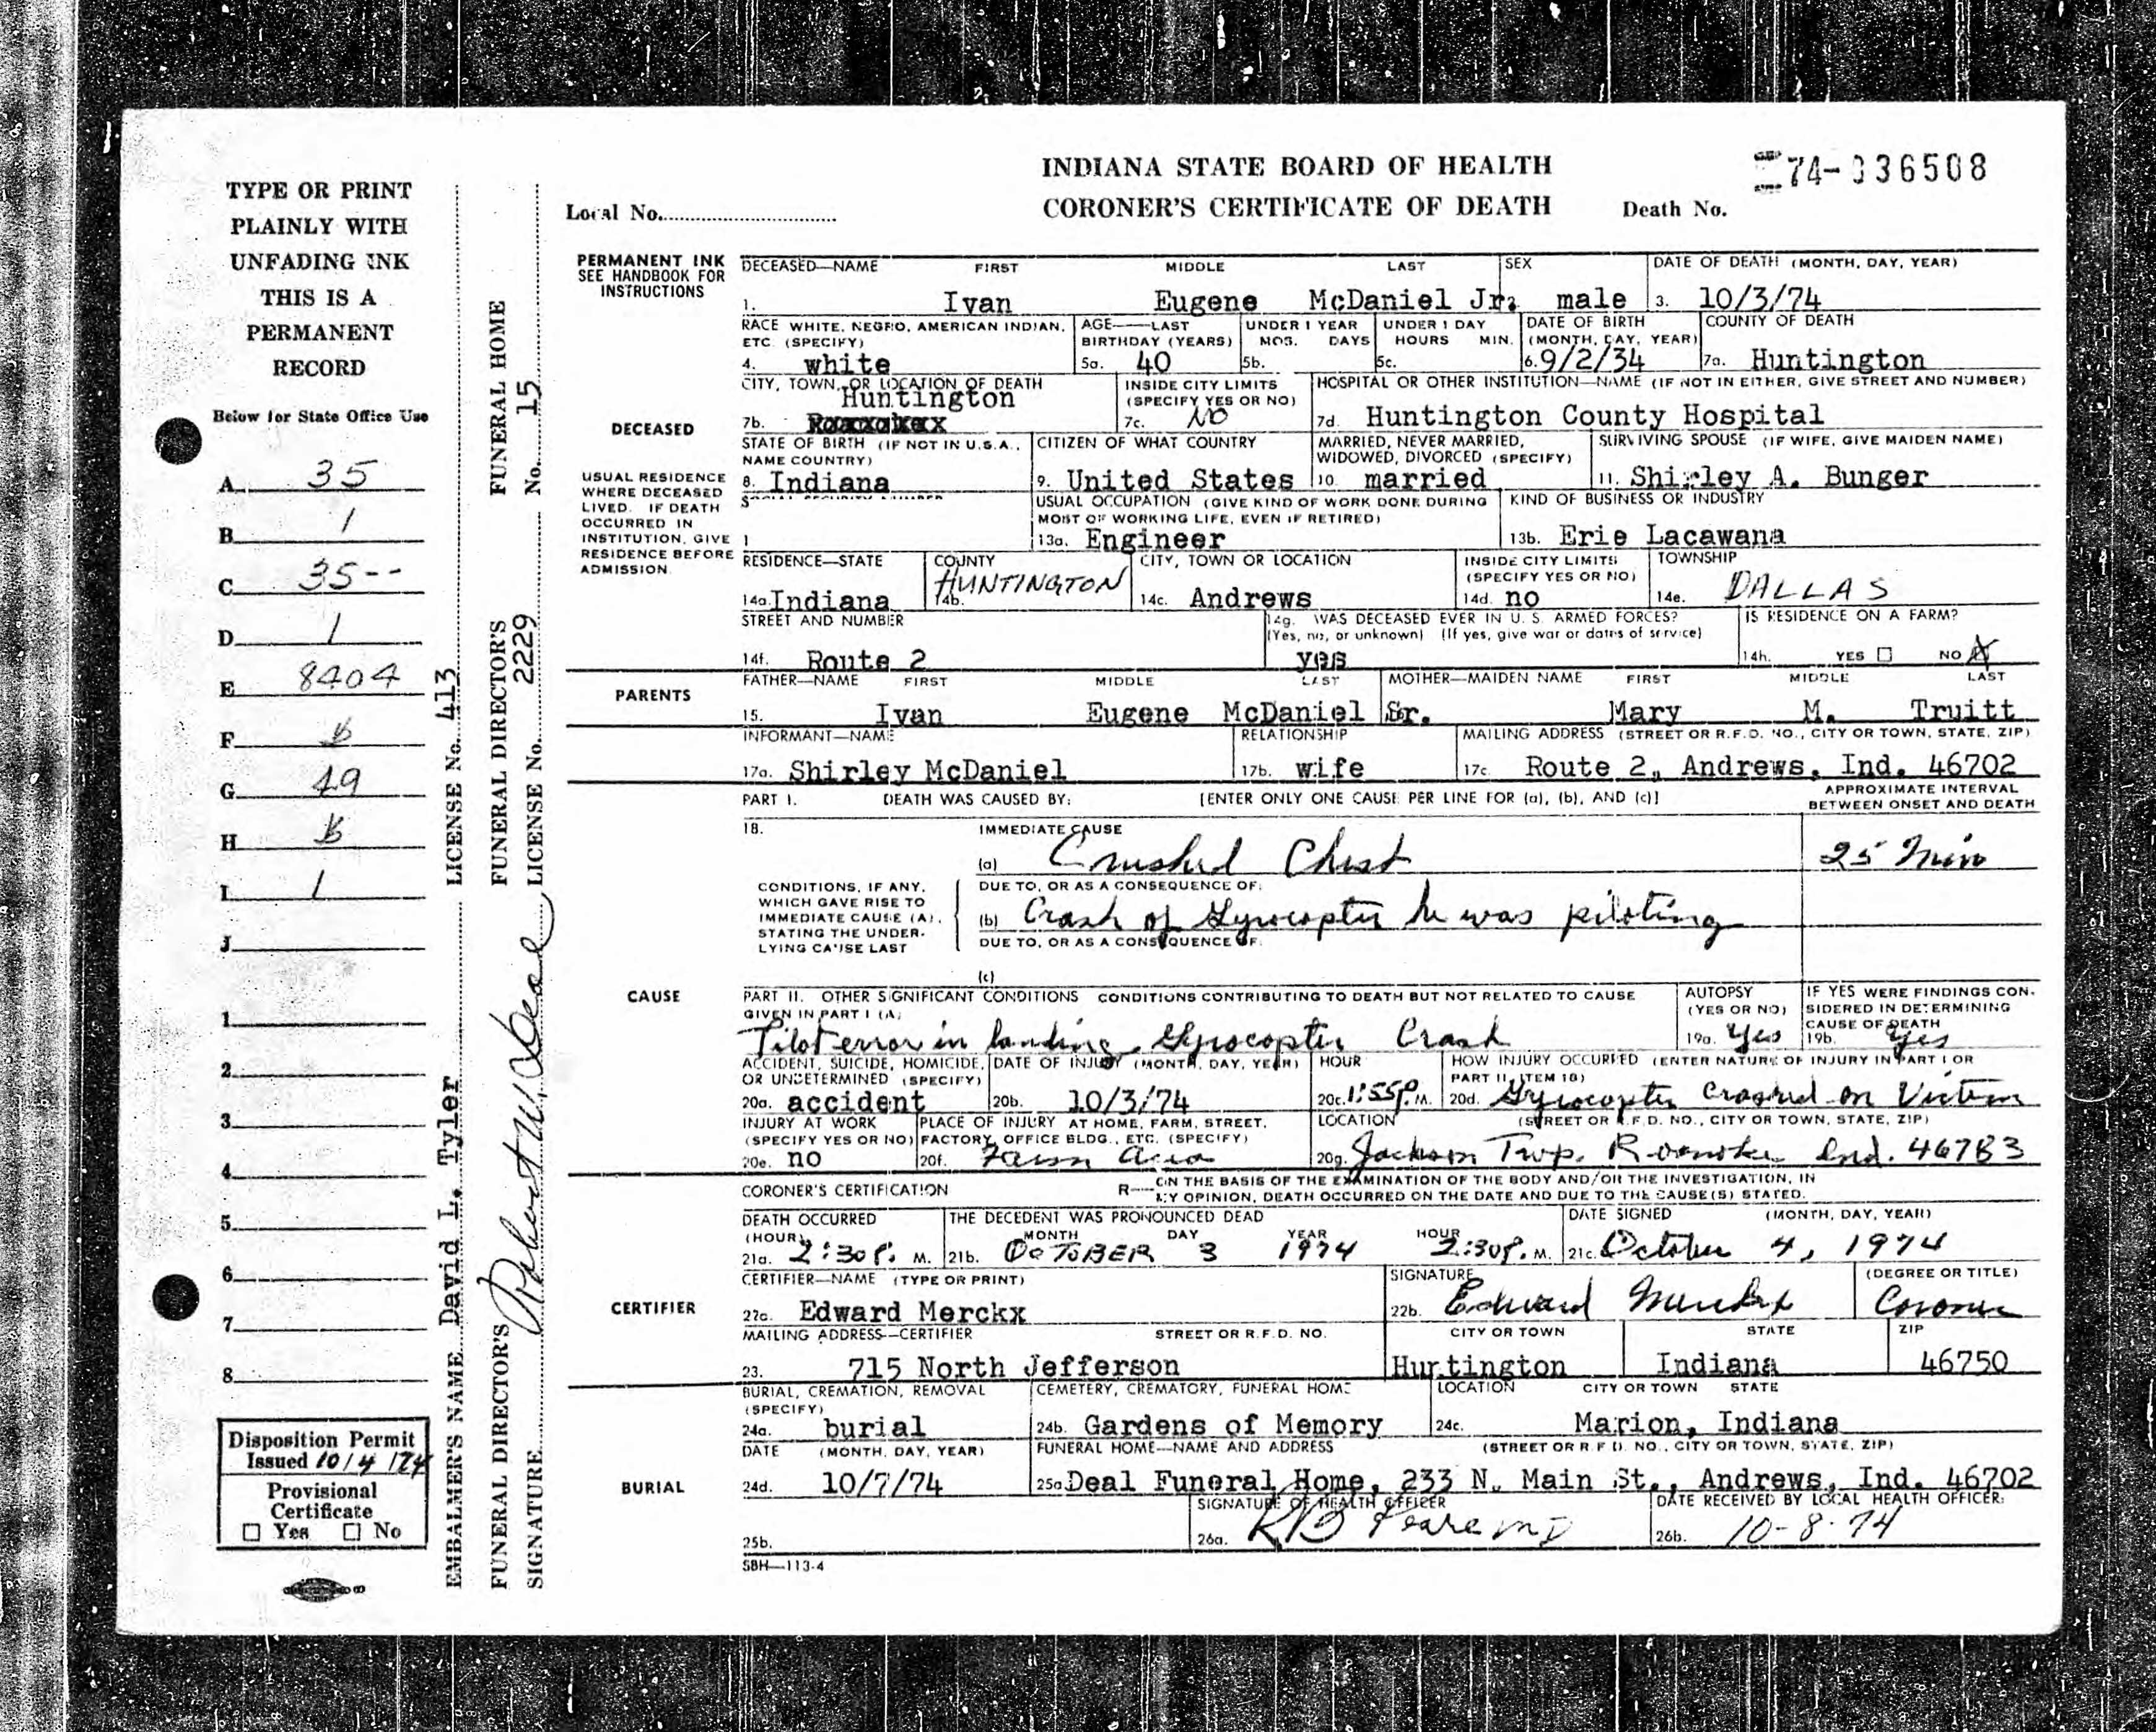 INDIANA STATE BOARD OF HEALTH
CORONER'S CERTIFICATE OF DEATH
Local No.
Death No. 74-036508
TYPE OR PRINT
PLAINLY WITH
UNFADING INK
THIS IS A
PERMANENT
RECORD
Below for State Office Use
A. 35
B. 1
C. 35--
D. 1
E. 8404
F. b
G. 49
H. b
I. 1
J.
1.
2.
3.
4.
5.
6.
7.
8.
Disposition Permit
Issued 10/4/74
Provisional
Certificate
☐ Yes ☐ No
EMBALMER'S NAME David L. Tyler LICENSE No. 413
FUNERAL DIRECTOR'S LICENSE No. 2229
FUNERAL DIRECTOR'S SIGNATURE Robert W. Deal
FUNERAL HOME No. 15
PERMANENT INK
SEE HANDBOOK FOR
INSTRUCTIONS
DECEASED—NAME FIRST MIDDLE LAST SEX DATE OF DEATH (MONTH, DAY, YEAR)
1. Ivan Eugene McDaniel Jr. male 3. 10/3/74
RACE WHITE, NEGRO, AMERICAN INDIAN, ETC. (SPECIFY) AGE—LAST BIRTHDAY (YEARS) UNDER 1 YEAR MOS. DAYS UNDER 1 DAY HOURS MIN. DATE OF BIRTH (MONTH, DAY, YEAR) COUNTY OF DEATH
4. white 5a. 40 5b. 5c. 6. 9/2/34 7a. Huntington
CITY, TOWN, OR LOCATION OF DEATH INSIDE CITY LIMITS (SPECIFY YES OR NO) HOSPITAL OR OTHER INSTITUTION—NAME (IF NOT IN EITHER, GIVE STREET AND NUMBER)
7b. Huntington 7c. NO 7d. Huntington County Hospital
DECEASED
STATE OF BIRTH (IF NOT IN U.S.A., NAME COUNTRY) CITIZEN OF WHAT COUNTRY MARRIED, NEVER MARRIED, WIDOWED, DIVORCED (SPECIFY) SURVIVING SPOUSE (IF WIFE, GIVE MAIDEN NAME)
8. Indiana 9. United States 10. married 11. Shirley A. Bunger
USUAL RESIDENCE
WHERE DECEASED
LIVED. IF DEATH
OCCURRED IN
INSTITUTION, GIVE
RESIDENCE BEFORE
ADMISSION.
USUAL OCCUPATION (GIVE KIND OF WORK DONE DURING MOST OF WORKING LIFE, EVEN IF RETIRED) KIND OF BUSINESS OR INDUSTRY
13a. Engineer 13b. Erie Lacawana
RESIDENCE—STATE COUNTY CITY, TOWN OR LOCATION INSIDE CITY LIMITS (SPECIFY YES OR NO) TOWNSHIP
14a. Indiana 14b. HUNTINGTON 14c. Andrews 14d. no 14e. DALLAS
STREET AND NUMBER 14g. WAS DECEASED EVER IN U. S. ARMED FORCES? (Yes, no, or unknown) (If yes, give war or dates of service) IS RESIDENCE ON A FARM?
14f. Route 2 yes 14h. YES ☐ NO X
PARENTS
FATHER—NAME FIRST MIDDLE LAST MOTHER—MAIDEN NAME FIRST MIDDLE LAST
15. Ivan Eugene McDaniel Sr. Mary M. Truitt
INFORMANT—NAME RELATIONSHIP MAILING ADDRESS (STREET OR R.F.D. NO., CITY OR TOWN, STATE, ZIP)
17a. Shirley McDaniel 17b. wife 17c. Route 2, Andrews, Ind. 46702
PART I. DEATH WAS CAUSED BY: [ENTER ONLY ONE CAUSE PER LINE FOR (a), (b), AND (c)] APPROXIMATE INTERVAL BETWEEN ONSET AND DEATH
18. IMMEDIATE CAUSE
(a) Crushed Chest 25 Min
CONDITIONS, IF ANY,
WHICH GAVE RISE TO
IMMEDIATE CAUSE (A),
STATING THE UNDER-
LYING CAUSE LAST
DUE TO, OR AS A CONSEQUENCE OF:
(b) Crash of Gyrocopter he was piloting
DUE TO, OR AS A CONSEQUENCE OF:
(c)
CAUSE
PART II. OTHER SIGNIFICANT CONDITIONS CONDITIONS CONTRIBUTING TO DEATH BUT NOT RELATED TO CAUSE GIVEN IN PART I (A)
Pilot error in landing. Gyrocopter Crash
AUTOPSY (YES OR NO) 19a. Yes
IF YES WERE FINDINGS CONSIDERED IN DETERMINING CAUSE OF DEATH 19b. Yes
ACCIDENT, SUICIDE, HOMICIDE, OR UNDETERMINED (SPECIFY) DATE OF INJURY (MONTH, DAY, YEAR) HOUR HOW INJURY OCCURRED (ENTER NATURE OF INJURY IN PART I OR PART II, ITEM 18)
20a. accident 20b. 10/3/74 20c. 1:55P. M. 20d. Gyrocopter Crashed on Victim
INJURY AT WORK (SPECIFY YES OR NO) PLACE OF INJURY AT HOME, FARM, STREET, FACTORY, OFFICE BLDG., ETC. (SPECIFY) LOCATION (STREET OR R.F.D. NO., CITY OR TOWN, STATE, ZIP)
20e. no 20f. Farm Area 20g. Jackson Twp. Roanoke Ind. 46783
CORONER'S CERTIFICATION R—ON THE BASIS OF THE EXAMINATION OF THE BODY AND/OR THE INVESTIGATION, IN MY OPINION, DEATH OCCURRED ON THE DATE AND DUE TO THE CAUSE(S) STATED.
DEATH OCCURRED (HOUR) THE DECEDENT WAS PRONOUNCED DEAD MONTH DAY YEAR HOUR DATE SIGNED (MONTH, DAY, YEAR)
21a. 2:30 P. M. 21b. OCTOBER 3 1974 2:30P. M. 21c. October 4, 1974
CERTIFIER
CERTIFIER—NAME (TYPE OR PRINT) SIGNATURE (DEGREE OR TITLE)
22a. Edward Merckx 22b. Edward Merckx Coroner
MAILING ADDRESS—CERTIFIER STREET OR R.F.D. NO. CITY OR TOWN STATE ZIP
23. 715 North Jefferson Huntington Indiana 46750
BURIAL
BURIAL, CREMATION, REMOVAL (SPECIFY) CEMETERY, CREMATORY, FUNERAL HOME LOCATION CITY OR TOWN STATE
24a. burial 24b. Gardens of Memory 24c. Marion, Indiana
DATE (MONTH, DAY, YEAR) FUNERAL HOME—NAME AND ADDRESS (STREET OR R.F.D. NO., CITY OR TOWN, STATE, ZIP)
24d. 10/7/74 25a. Deal Funeral Home, 233 N. Main St., Andrews, Ind. 46702
SIGNATURE OF HEALTH OFFICER DATE RECEIVED BY LOCAL HEALTH OFFICER:
25b. 26a. MD 26b. 10-8-74
SBH—113-4